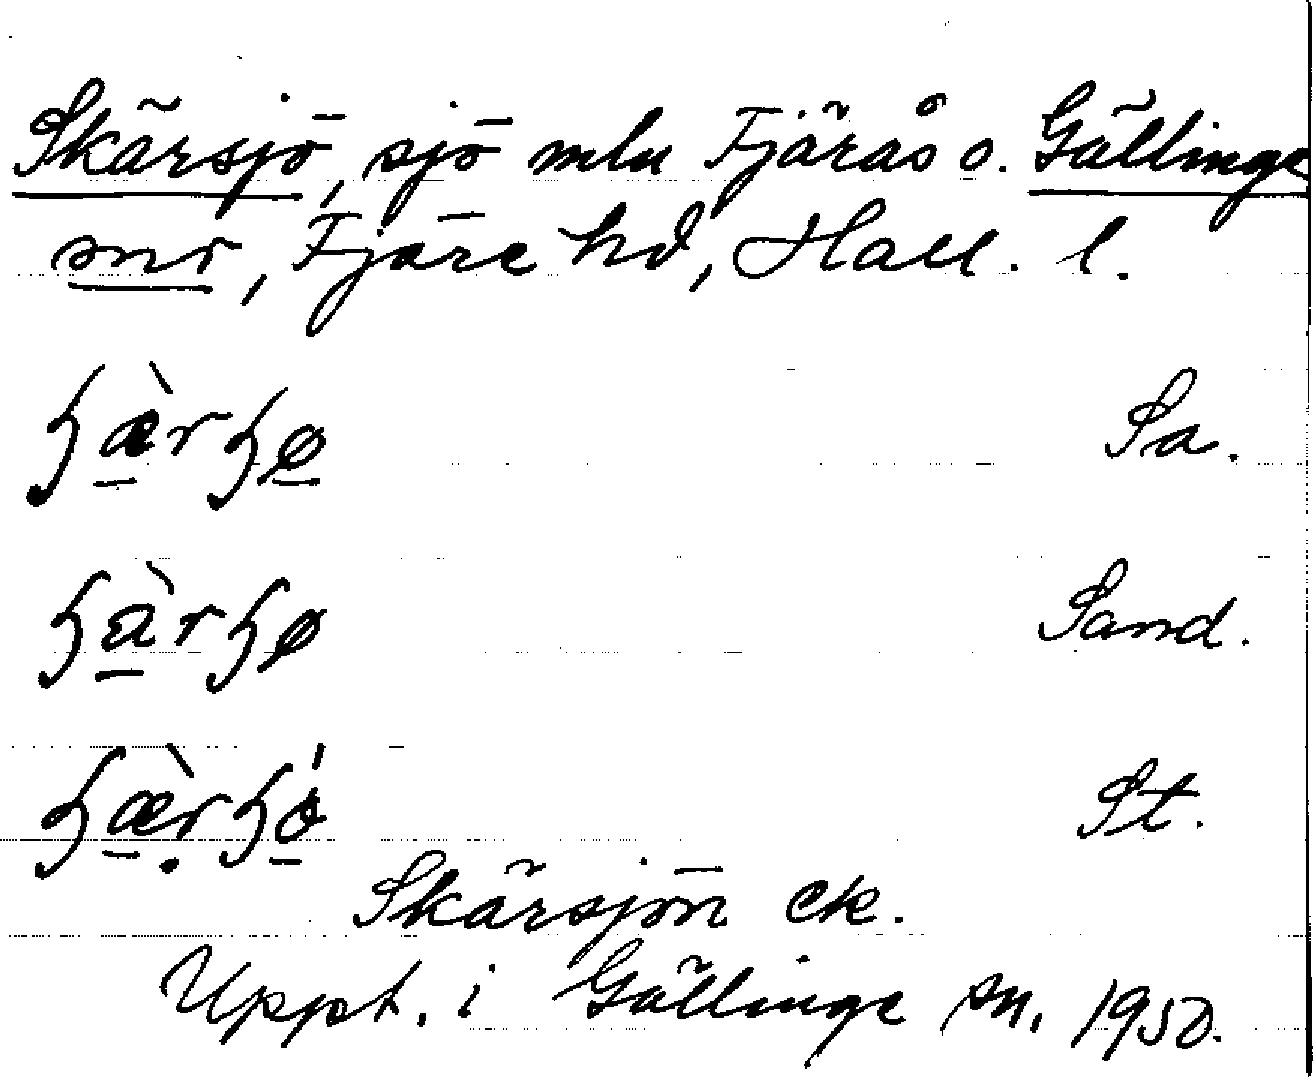 Skärsjö, sjö mlu Fjärås o. Gällinge
snr, Fjäre hd, Hall. l.
ɧæ̀rɧø Sa.
ɧàrɧø Sand.
ɧæ̀rɧó St.
Skärsjön ek.
Uppt. i Gällinge sn. 1950.